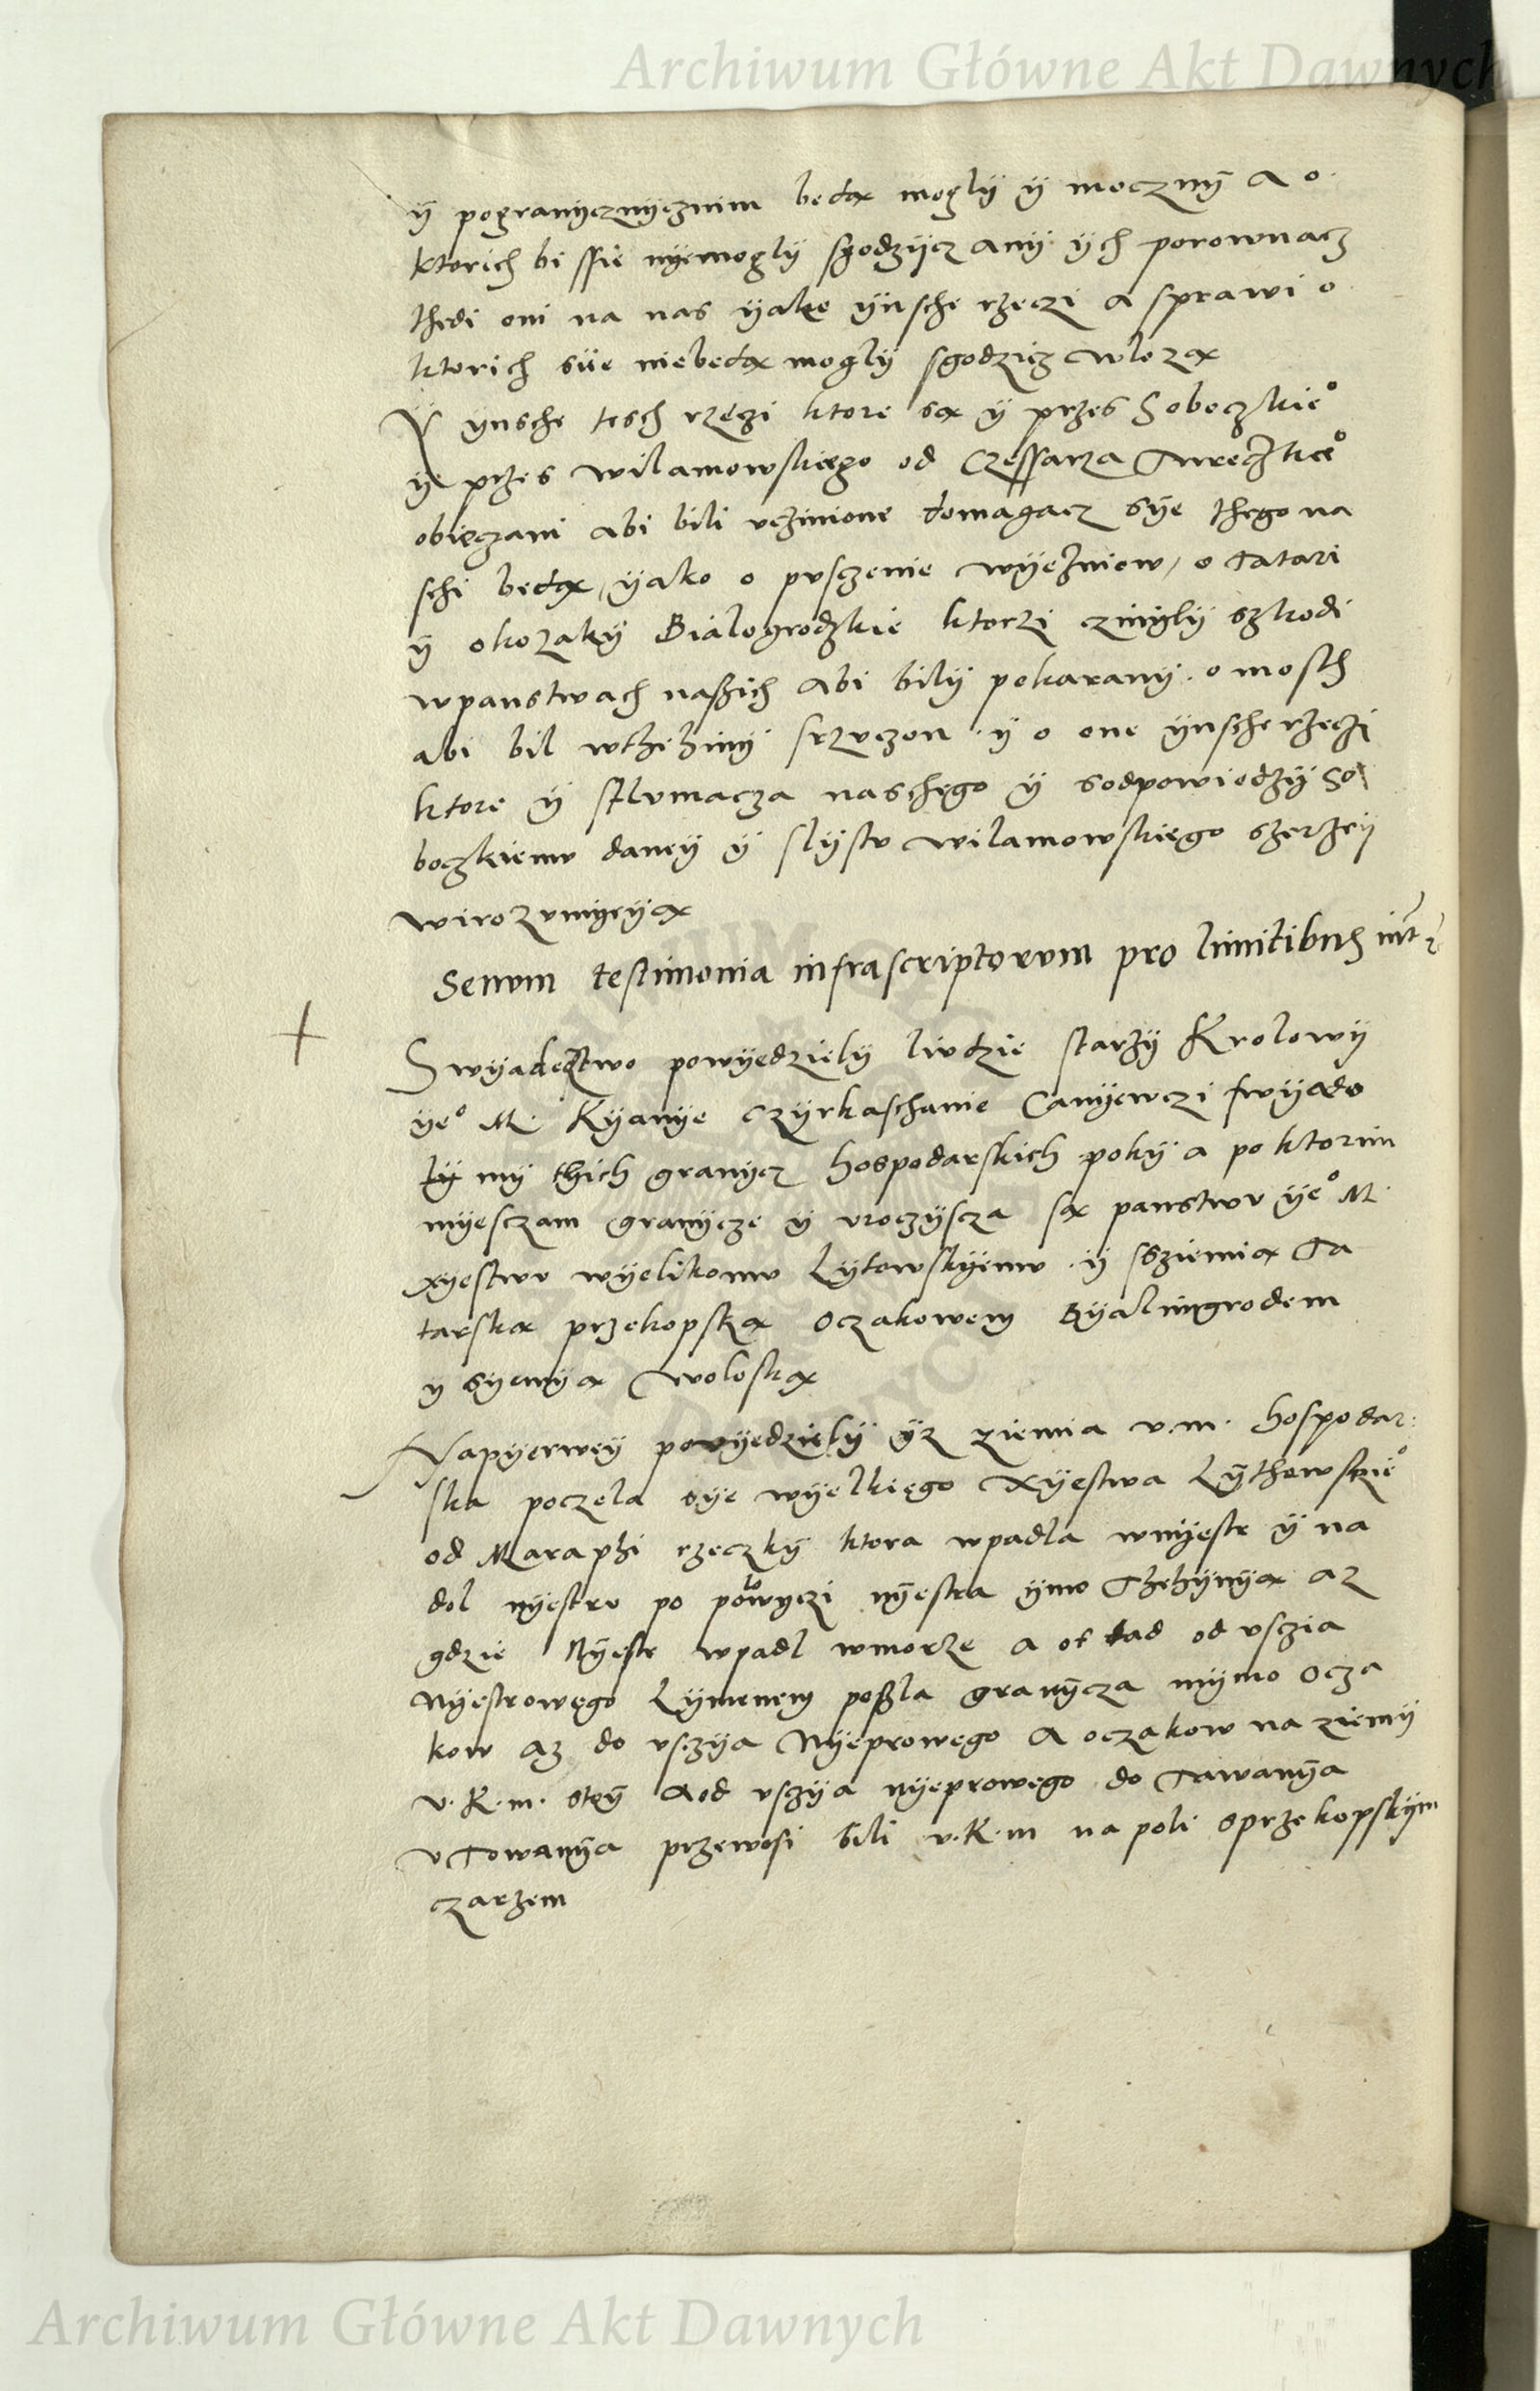 Archiwum Główne Akt Dawnych
ÿ pogranycznycznim bedą moglÿ ÿ mocznÿ A o
ktorich bi ssie nÿemoglÿ sgodzÿcz anÿ ÿch porownacz
thedi oni na nas ÿako ÿnsche rzeczi a sprawi o
ktorich siie niebedą moglÿ sgodzicz wlozą
Y ÿnsche tesch rzeczi ktore są ÿ przes Soboczkie°
ÿ przes wilamowskiego od Czessarza Tureczkie°
obieczani abi bili vczinione domagacz sÿe thego na
schi bedą, ÿako o pusczenie wÿezniow, o Tatari
ÿ okozakÿ Bialogrodzkie ktorzi czinÿlÿ szkodi
wpanstwach naßich Abi bilÿ pokaranÿ. o mosth
abi bil wthehinÿ srzuczon. ÿ o one ÿnsche rzeczi
ktore ÿ stlumacza naschego ÿ sodpowiedzÿ So
boczkiemu daneÿ ÿ slÿstu wilamowskiego szerzeÿ
wirozumÿeÿą
Senum testimonia infrascriptorum pro limitibus
Swyadectwo powÿedzielÿ ludzie starzÿ Krolowÿ
ÿe° M. Kÿanÿe Czÿrkaschanie Canÿewczi swÿado
lÿ mÿ thich granÿcz hospodarskich pokÿ a po ktorim
mÿesczam granÿcze ÿ vroczÿscza są panstwu ÿe° M.
xÿestwu wÿelikomu Lÿtowskÿemu ÿ sziemią Ta
tarską przekopską Oczakowem Bÿalimgrodem
ÿ sÿemÿą woloską
Napÿerweÿ powÿedzielÿ ÿz ziemia v.m. hospodar
ska poczela sÿe wÿelkiego Xÿestwa Lÿthowskie°
od Maraphi rzeczkÿ ktora wpadla wnÿestr ÿ na
dol nÿestru po polowyczi nÿestra ÿmo Thehÿnÿą az
gdzie Nÿestr wpadl wmorze a ot tad od vsczia
Nÿestrowego Lÿmenem poßla granÿcza mÿmo Ocza
kow az do vsczÿa Nÿeprowego A oczakow na ziemÿ
v.K.m. A od vsczÿa nÿeprowego do Tawanÿa
v Towanÿa przewosi bili v.K.m na poli sprzekopskÿm
czarzem
Archiwum Główne Akt Dawnych